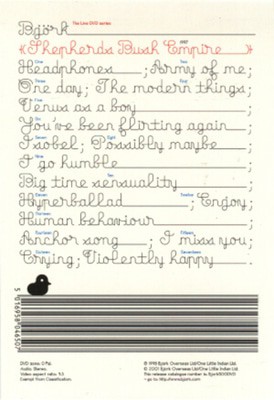 Björk The Live DVD series:
Shepherds Bush Empire 1997
One Two
Headphones ; Army of me;
Three Four
One day; The modern things;
Five
Venus as a boy ;
Six
You've been flirting again ;
Seven Eight
Isobel; Possibly maybe ;
Nine
I go humble ;
Ten
Big time sensuality ;
Eleven Twelve
Hyperballad ; Enjoy;
Thirteen
Human behaviour ;
Fourteen Fifteen
Anchor song ; I miss you;
Sixteen Seventeen
Crying; Violently happy .
5 016958 046507
DVD
Audio. Stereo.
Video aspect ratio:
Exempt from Classification.
℗ 1998 Bjork Overseas Ltd/One Little Indian Ltd.
© 2001 Bjork Overseas Ltd/One Little Indian Ltd.
This release catalogue number is: